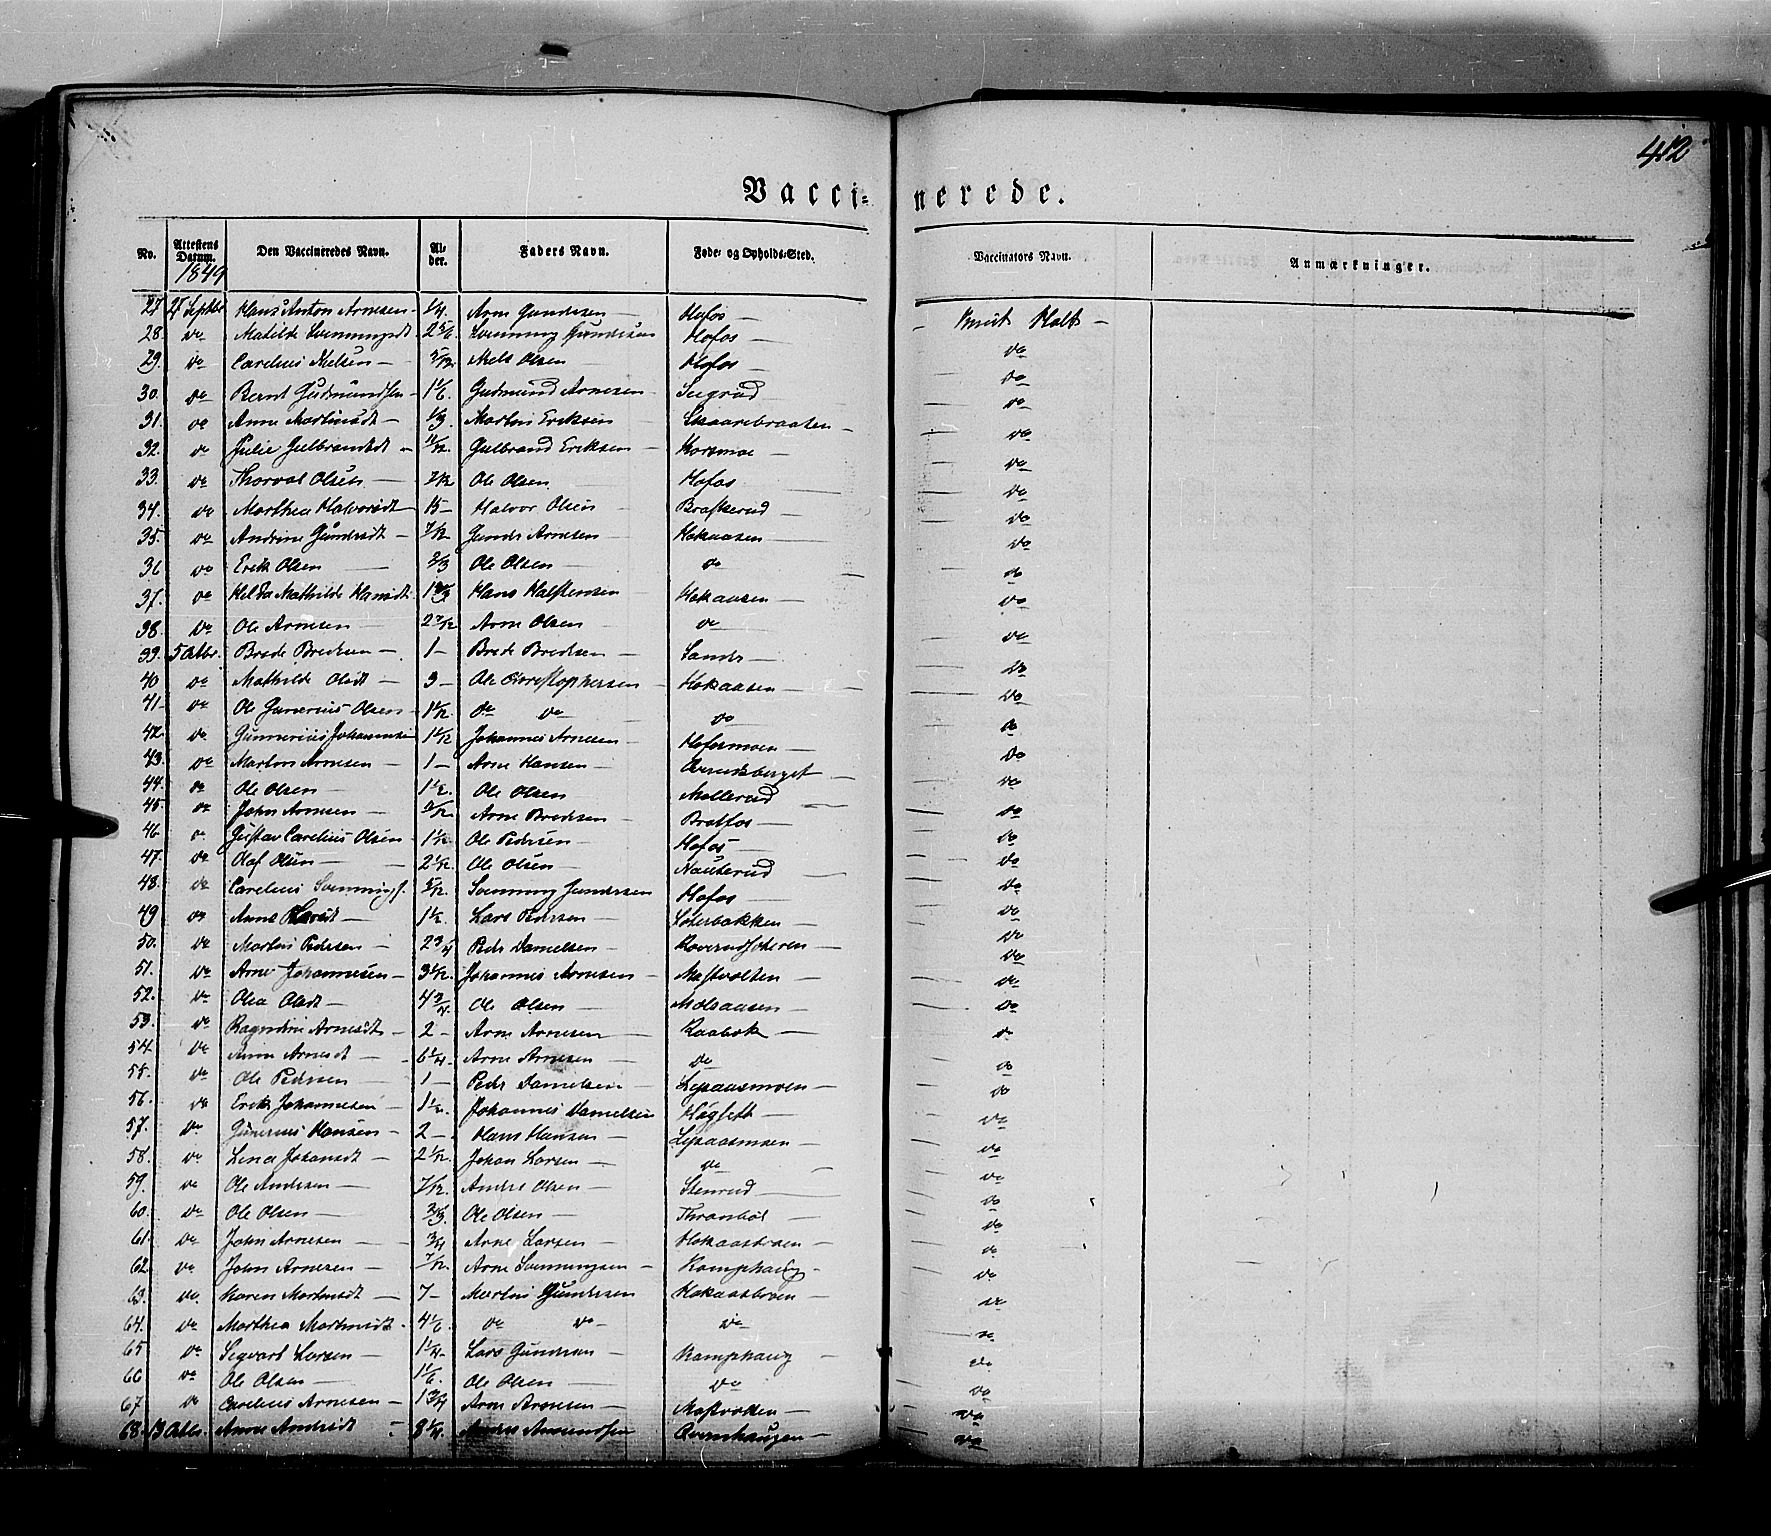 412
Vacci- nerede.
No. Attestens Datum. Den Vaccineredes Navn. Al- der. Faders Navn. Føde- og Opholds-Sted. Vaccinators Navn. Anmærkninger.
1849
27 27 Septbr Hans Anton Arnesen - 1/4 Arne Gundersen - Hofos - Holth -
28 do 2 5/6 Svenning Gundersen Hofos - do
29. do Carelius Nielsen - 5/12 Niels Olsen Hofos - do
30. do Bernt Gudmundsen - 1 1/6. Gudmund Arnesen - do
31. do Anne Martinsdt - 1/3. Martin Eriksen Skaarebraaten - do
32. do Julie Gulbrandsdt - Gulbrand Eriksen - Korsmoe - do
33. do Thorvald Olsen - 7/12 Ole Olsen Hofos do
34. do Marthea Halvorsdt - 15 - Halvor Olsen - do
35. do Andrine Gundersdt - 7/12 Gunder Arnesen - Hokaasen - do
36 do Erik Olsen - 2/3 Ole Olsen - do do
37. do Hans Halstensen Hokaasen - do
38. do Ole Arnesen - 2 7/12 Arne Olsen do do
39. 5 Octbr. Brede Bredesen - 1 - Brede Bredesen - Sander - do
40 do Mathilde Olsdt - 3 - Ole Christophersen Hokaasen - do
41 do Ole Gunerius Olsen - 1 1/2. do do do do
42. do Gunnerius Johannesen 1 1/2 Johannes Arnesen - Hofosmoen - do
43. do Martin Arnesen - 1 - Arne Hansen - do
44. do Ole Olsen - 1 1/2. Ole Olsen Møllerud do
45. do John Arnesen - Arne Bredesen - Bratfos - do
46 do Gustav Carelius Olsen - 1 1/2 Ole Pedersen - Hofos - do
47. do Olaf Olsen - 2 1/2. Ole Olsen - Nauterud do
48. do Carelius Svennings. Svenning Gundersen Hofos - do
49 do Anne Larsdt - 1 1/2. Lars Pedersen - Sæterbakken - do
50. do Martin Pedersen - 2 3/4 Peder Danielsen - do
51. do Arne Johannesen - 3 1/2. Johannes Arnesen - Mastvolten - do
52. do Olea Olsdt - 4 3/4. Ole Olsen - do
53. do Arnesdt - 2 - Arne Arnesen - Raabøk - do
54. do Anne Arnesdt - 6 1/4. Arne Arnesen - do do
55. do Ole Pedersen - 1 - Peder Danielsen - Lysaasmoen - do
56. do Erik Johannesen - 1 1/2. Johannes Danielsen do
57. do Gunerius Hansen - 2 - Hans Hansen - Lysaasmoen - do
58. do Lina Johansdt - 2 1/2. Johan Larsen - do - do
59. do Ole Andersen - 7/12. Andre Olsen - Stenrud do
60. do Ole Olsen - 2/3. Ole Olsen - Thranbøl - do
61. do John Arnesen - 3/4 Arne Larsen - do
62. do John Arnesen - 7/12. Arne Svenningsen - Kamphaug - do
63. do Maren Martinsdt - 7 - Martin Gundersen do
64. do Marthea Martinsdt - 4 1/6. do do - do do
65 do Segvart Larsen - 1 1/4. Lars Gundersen - Kamphaug - do
66 do Ole Olsen - 1 1/6. Ole Olsen - do do
67 do Carelius Arnesen - 1 3/4 Arne Arnesen - Mastvolten - do
68. 13 Octbr. Anne Andersdt - 8 1/4. Qvernhaugen - do